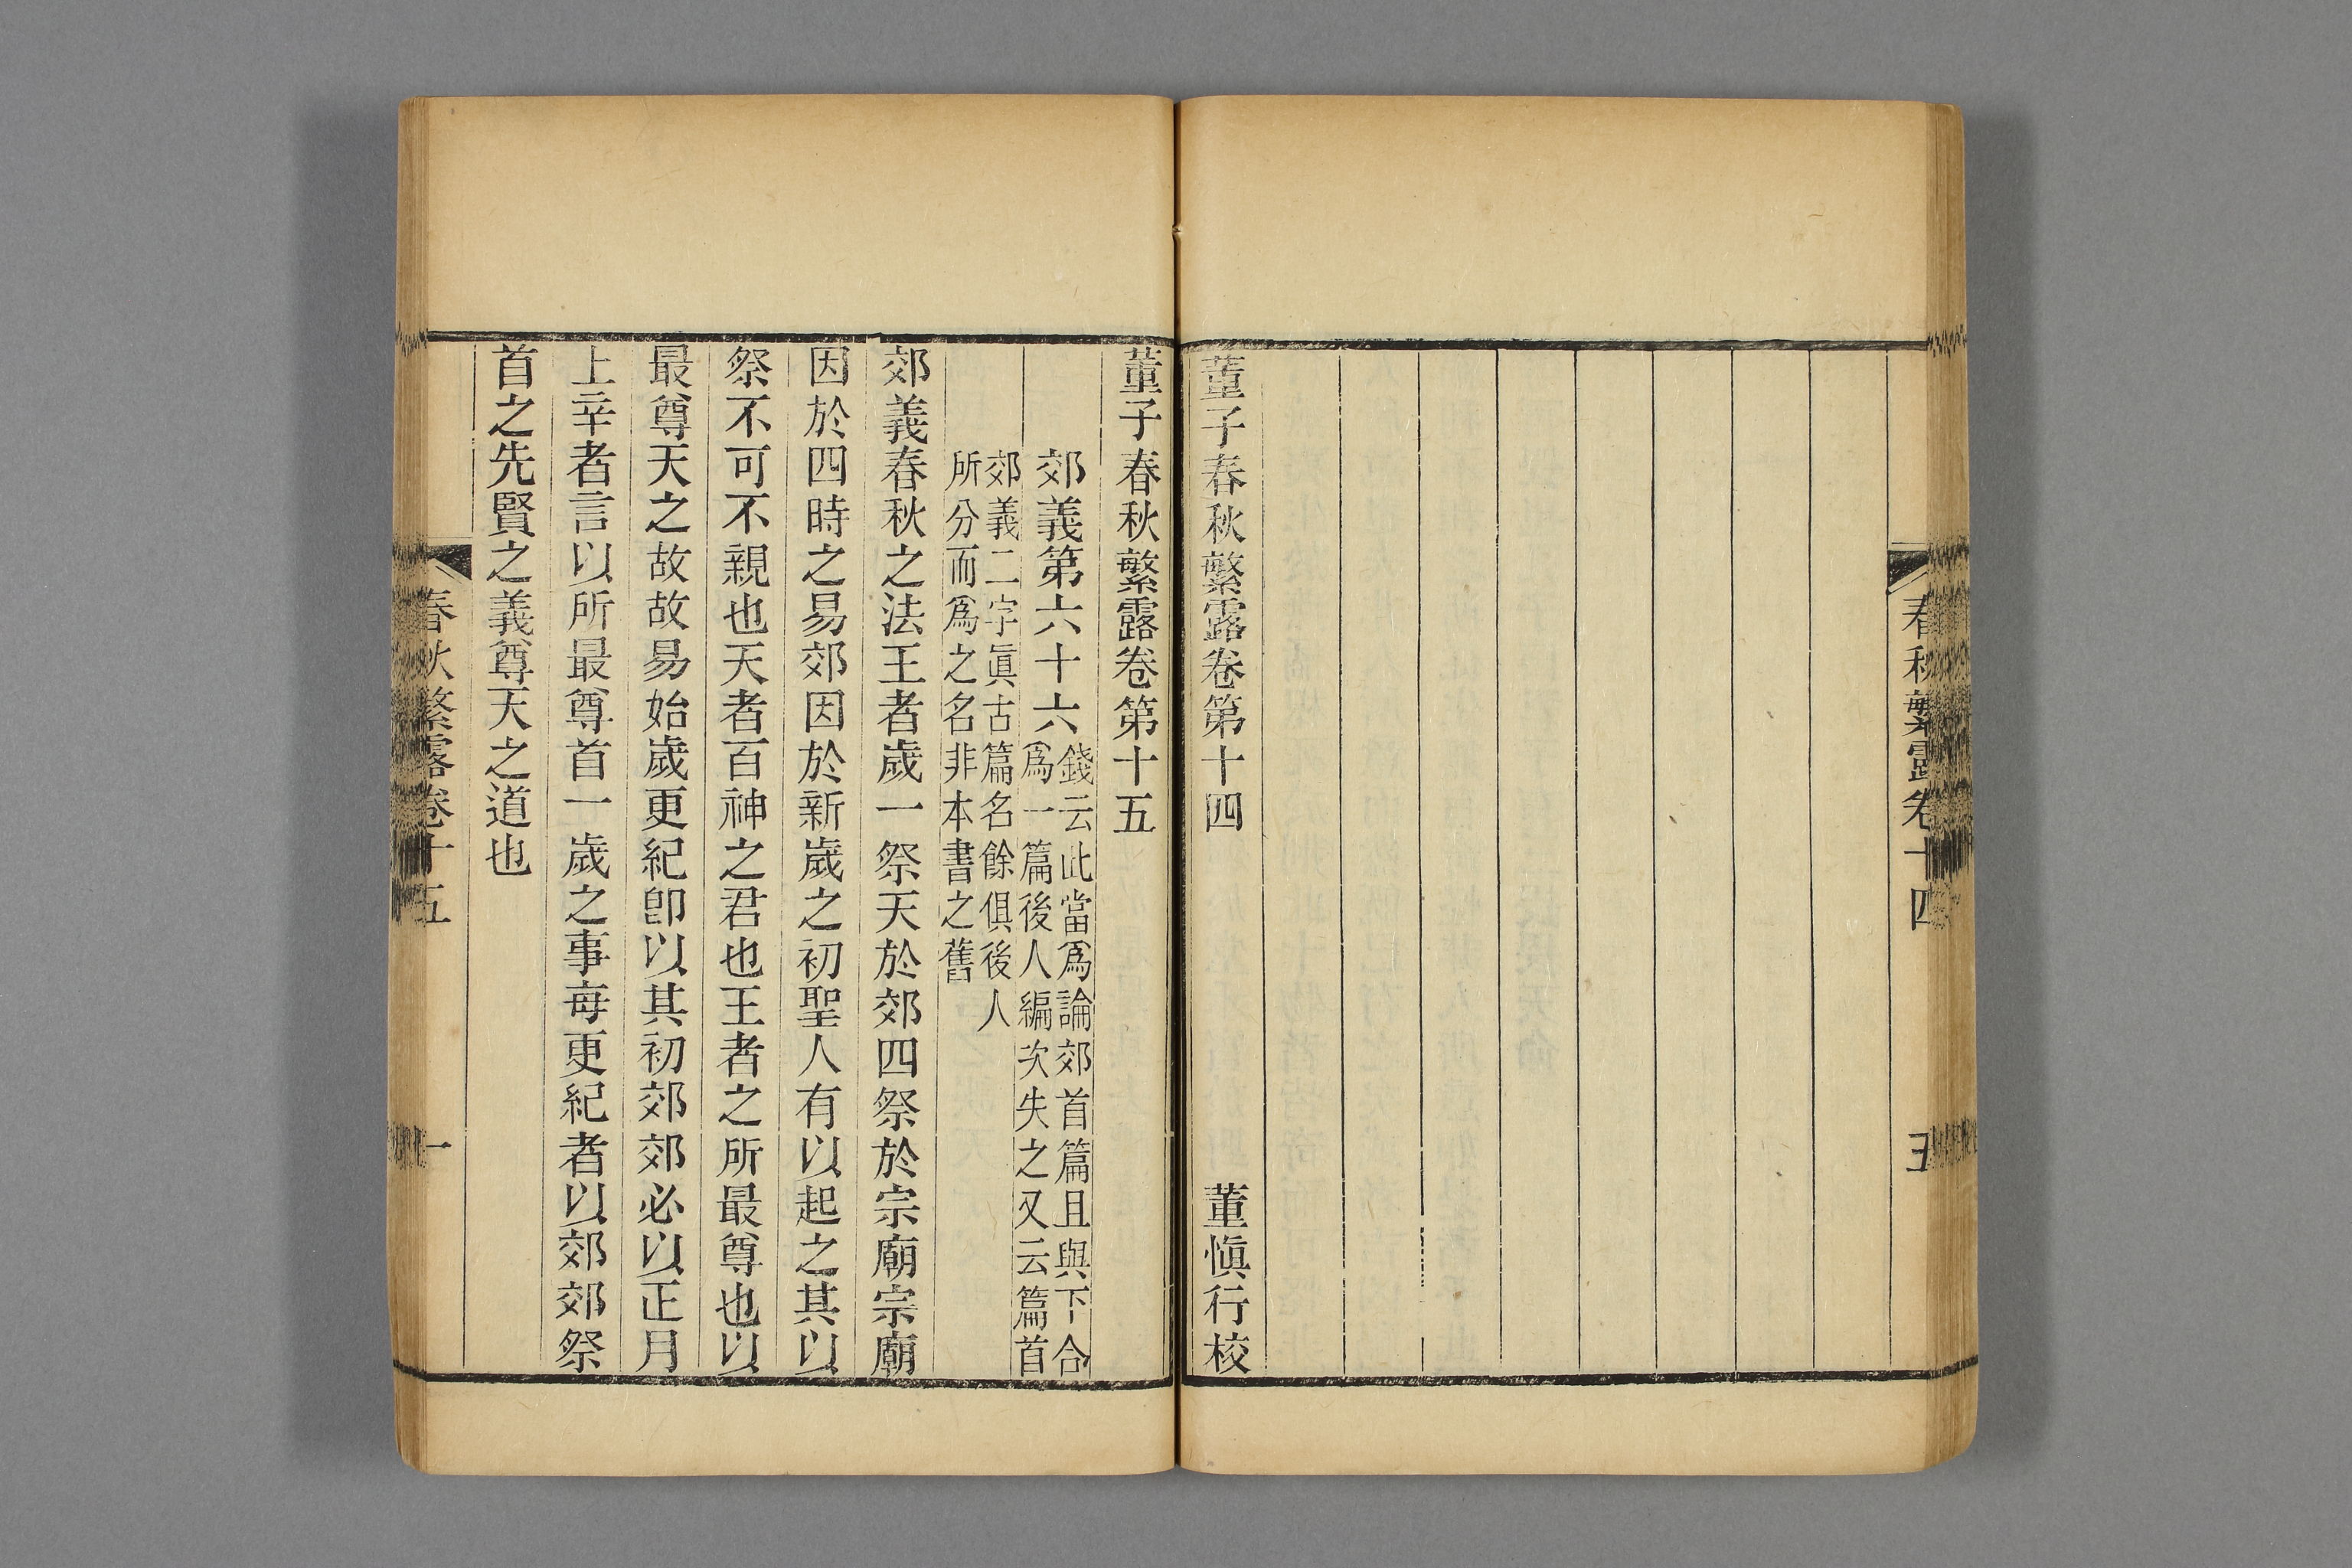 春秋繁露卷十四
五
董子春秋繁露卷第十四　董愼行校
董子春秋繁露卷第十五
郊義第六十六錢云此當爲論郊首篇且與下合
爲一篇後人編次失之又云篇首
郊義二字眞古篇名餘俱後人
所分而爲之名非本書之舊
郊義春秋之法王者歲一祭天於郊四祭於宗廟宗廟
因於四時之易郊因於新歲之初聖人有以起之其以
祭不可不親也天者百神之君也王者之所最尊也以
最尊天之故故易始歲更紀卽以其初郊郊必以正月
上辛者言以所最尊首一歲之事每更紀者以郊郊祭
首之先賢之義尊天之道也
春秋繁露卷十五
一